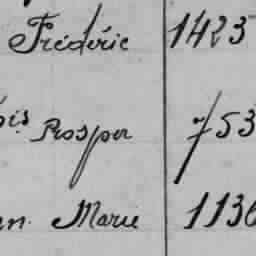 Fréderic 1423
ois Prosper 753
en Marie 1136